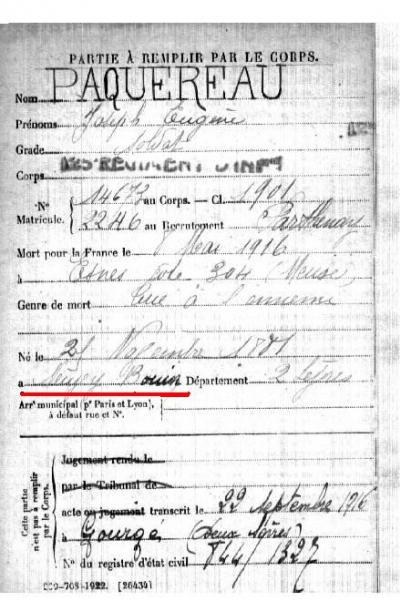 PARTIE À REMPLIR PAR LE CORPS.
Nom PAQUEREAU
Prénoms Joseph Eugène
Grade Soldat
Corps 125 RÉGIMENT D'INF
N° Matricule. { 14673 au Corps. — Cl. 1901
2246 au Recrutement Parthenay
Mort pour la France le 8 Mai 1916
à Esnes cote 304 (Meuse)
Genre de mort Tué à l'ennemi
Né le 25 Novembre 1881
à Bouin Département 2 Sèvres
Arr' municipal (p' Paris et Lyon),
à défaut rue et N°.
Cette partie
n'est pas à remplir
par le Corps.
Jugement rendu le
par le Tribunal de
acte ou jugement transcrit le 22 Septembre 1916
à Gourgé (Deux Sèvres)
N° du registre d'état civil 844/1327
[26434]